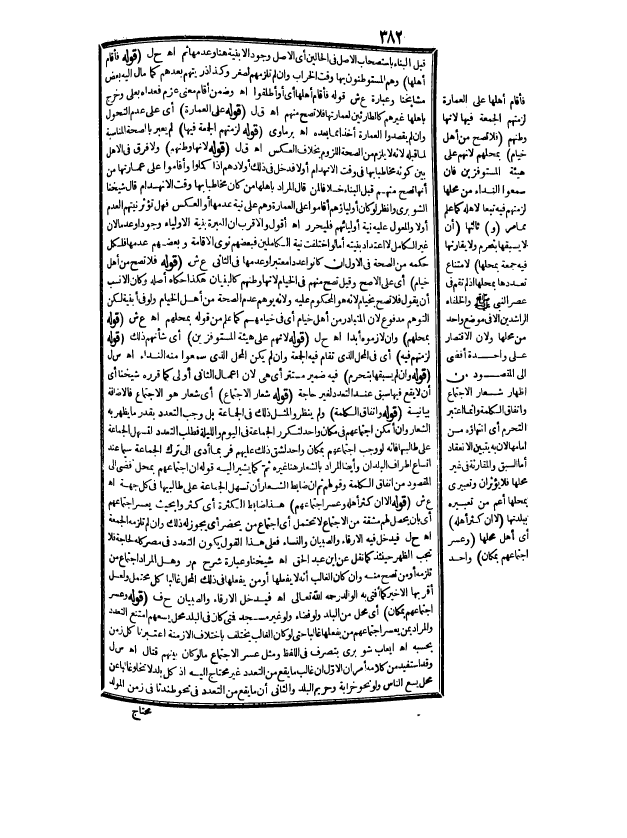 ٣٨٢
قبل البناء باستصحاب الاصل فى الحالين أى الاصل وجود الابنية هنا وعدمها ثم اه حل (قوله فأقام
أهلها) وهم المستوطنون بها وقت الخراب وان لم تلزمهم لصغر وكذا ذريتهم بعدهم كما مال اليه بعض
مشايخنا وعبارة عش قوله فأقام أهلها أى أو أطلقوا اه وضمن أقام معنى عزم فعداه بعلى وخرج
بأهلها غيرهم كالطارئين لعمارتها فلا تصح منهم اه قل (قوله على العمارة) أى على عدم التحول
وان لم يقصدوا العمارة أخذا مما بعده اه برماوى (قوله لزمتهم الجمعة فيها) لم يعبر بالصحة المناسبة
لما قبله لانه لا يلزم من الصحة اللزوم بخلاف العكس اه قل (قوله لانها وطنهم) ولا فرق فى الاهل
بين كونه مخاطبا بها فى وقت الانهدام أولا فدخل فى ذلك أولادهم اذا كملوا وأقاموا على عمارتها من
أنها تصح منهم قبل البناء خلافا لمن قال المراد بأهلها من كان مخاطبا بها وقت الانهدام قال شيخنا
الشوبرى وانظر لو كان أولياؤهم أقاموا على العمارة وهم على نية عدمها أو العكس فهل تؤثر نيتهم العدم
أولا والمعول عليه نية أوليائهم فليحرر اه أقول والاقرب ان العبرة بنية الاولياء وجودا وعدما لان
غير الكامل لا اعتداد بنيته أما لو اختلفت نية الكاملين فبعضهم نوى الاقامة وبعضهم عدمها فلكل
حكمه من الصحة فى الاول ان كانوا عددا معتبرا وعدمها فى الثانى عش (قوله فلا تصح من أهل
خيام) أى على الاصح وقيل تصح منهم فى الخيام لانها وطنهم كما فى البنيان هكذا حكاه أصله وكان الانسب
أن يقول فلا تصح بخيام لانه هو المحكوم عليه ولانه يوهم عدم الصحة من أهل الخيام ولو فى أبنية لكن
التوهم مدفوع لان المتبادر من أهل خيام أى فى خيامهم كما علم من قوله بمحلهم اه عش (قوله
بمحلهم) وان لازموه أبدا اه حل (قوله لانهم على هيئة المستوفزين) أى شأنهم ذلك (قوله
لزمتهم فيه) أى فى المحل الذى تقام فيه الجمعة وان لم يكن المحل الذى سمعوا منه النداء اه سل
(قوله وان لم يسبقها بتحرم) فيه ضمير مستتر أى هى لان اعمال الثانى أولى كما قرره شيخنا أى
أن لا يقع فيها سبق عند التعدد لغير حاجة (قوله شعار الاجتماع) أى شعار هو الاجتماع فالاضافة
بيانية (قوله واتفاق الكلمة) ولم ينظر والمثل ذلك فى الجماعة بل وجب التعدد بقدر ما يظهر به
الشعار وان أمكن اجتماعهم فى مكان واحد لتكرر الجماعة فى اليوم والليلة فطلب التعدد لتسهل الجماعة
على طالبها فانه لو وجب اجتماعهم بمكان واحد لشق ذلك عليهم فربما أدى الى ترك الجماعة سيما عند
اتساع اطراف البلدان وأيضا المراد بالشعار هنا غيره ثم كما يشير اليه قوله ان اجتماعهم بمحل أفضى الى
المقصود من اتفاق الكلمة وقولهم ثم ان ضابط الشعار أن تسهل الجماعة على طالبيها فى كل جهة اه
عش (قوله الا ان كثر أهله وعسر اجتماعهم) هذا ضابط الكثرة أى كثروا بحيث يعسر اجتماعهم
أى بان يحصل لهم مشقة من الاجتماع لا تحتمل أى اجتماع من يحضر أى يجوز له ذلك وان لم تلزمه الجمعة
اه حل فيدخل فيه الارقاء والصبيان والنساء فعلى هذا القول يكون التعدد فى مصر كله لحاجة فلا
تجب الظهر حينئذ كما نقل عن ابن عبد الحق اه شيخنا وعبارة شرح مر وهل المراد اجتماع من
تلزمه أو من تصح منه وان كان الغالب أنه لا يفعلها أو من يفعلها فى ذلك المحل غالبا كل محتمل ولعل
أقربها الاخير كما أفتى به الوالد رحمه الله تعالى اه فيدخل الارقاء والصبيان حف (قوله وعسر
اجتماعهم بمكان) أى محل من البلد ولو فضاء ولو غير مسجد فمتى كان فى البلد محل يسعهم امتنع التعدد
والمراد بمن يعسر اجتماعهم من يفعلها غالبا حتى لو كان الغالب يختلف باختلاف الازمنة اعتبرنا كل زمن
بحسبه اه ايعاب شوبرى بتصرف فى اللفظ ومثل عسر الاجتماع مالو كان بينهم قتال اه سل
وقد استفيد من كلامه أمران الاول ان غالب ما يقع من التعدد غير محتاج اليه اذ كل بلد لا تخلو غالبا عن
محل يسع الناس ولو نحو خرابة وحريم البلد والثانى أن ما يقع من التعدد فى نحو طندتا فى زمن المولد
محتاج
فأقام أهلها على العمارة
لزمتهم الجمعة فيها لانها
وطنهم (فلا تصح من أهل
خيام) بمحلهم لانهم على
هيئة المستوفزين فان
سمعوا النداء من محلها
لزمتهم فيه تبعا لاهله كما علم
مما مر (و) ثالثها (أن
لا يسبقها بتحرم ولا يقارنها
فيه جمعة بمحلها) لامتناع
تعددها بمحلها اذ لم تقم فى
عصر النبى ﷺ والخلفاء
الراشدين الا فى موضع واحد
من محلها ولان الاقتصار
على واحدة أفضى
الى المقصود من
اظهار شعار الاجتماع
واتفاق الكلمة وانما اعتبر
التحرم أى انتهاؤه من
امامها لان به يتبين الانعقاد
أما السبق والمقارنة فى غير
محلها فلا يؤثران وتعبيرى
بمحلها أعم من تعبيره
ببلدتها (الا ان كثر أهله)
أى أهل محلها (وعسر
اجتماعهم بمكان) واحد